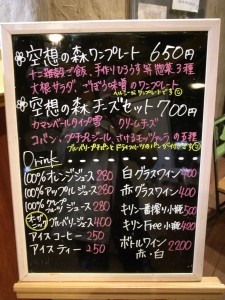 空想の森ワンプレート 650円
十二雑穀ご飯、手作りひろうす等 惣菜3種
大根サラダ、ごぼう味噌のワンプレート
ヘルシーなワンプレートです
空想の森チーズセット 700円
カマンベールタイプ雪 クリームチーズ
コバン、プチプレジール、さけるモッツァレラの5種
ブルーベリープチパンとドライフルーツのパンが付きます
Drink
100%オレンジジュース 280
100%アップルジュース 280
100% ジュース 280
オーガニック ブルーベリージュース 400
アイスコーヒー 250
アイスティー 250
白グラスワイン 400
赤グラスワイン 400
キリン一番搾り小瓶 500
キリンFree小瓶 420
ボトルワイン 2200
赤・白